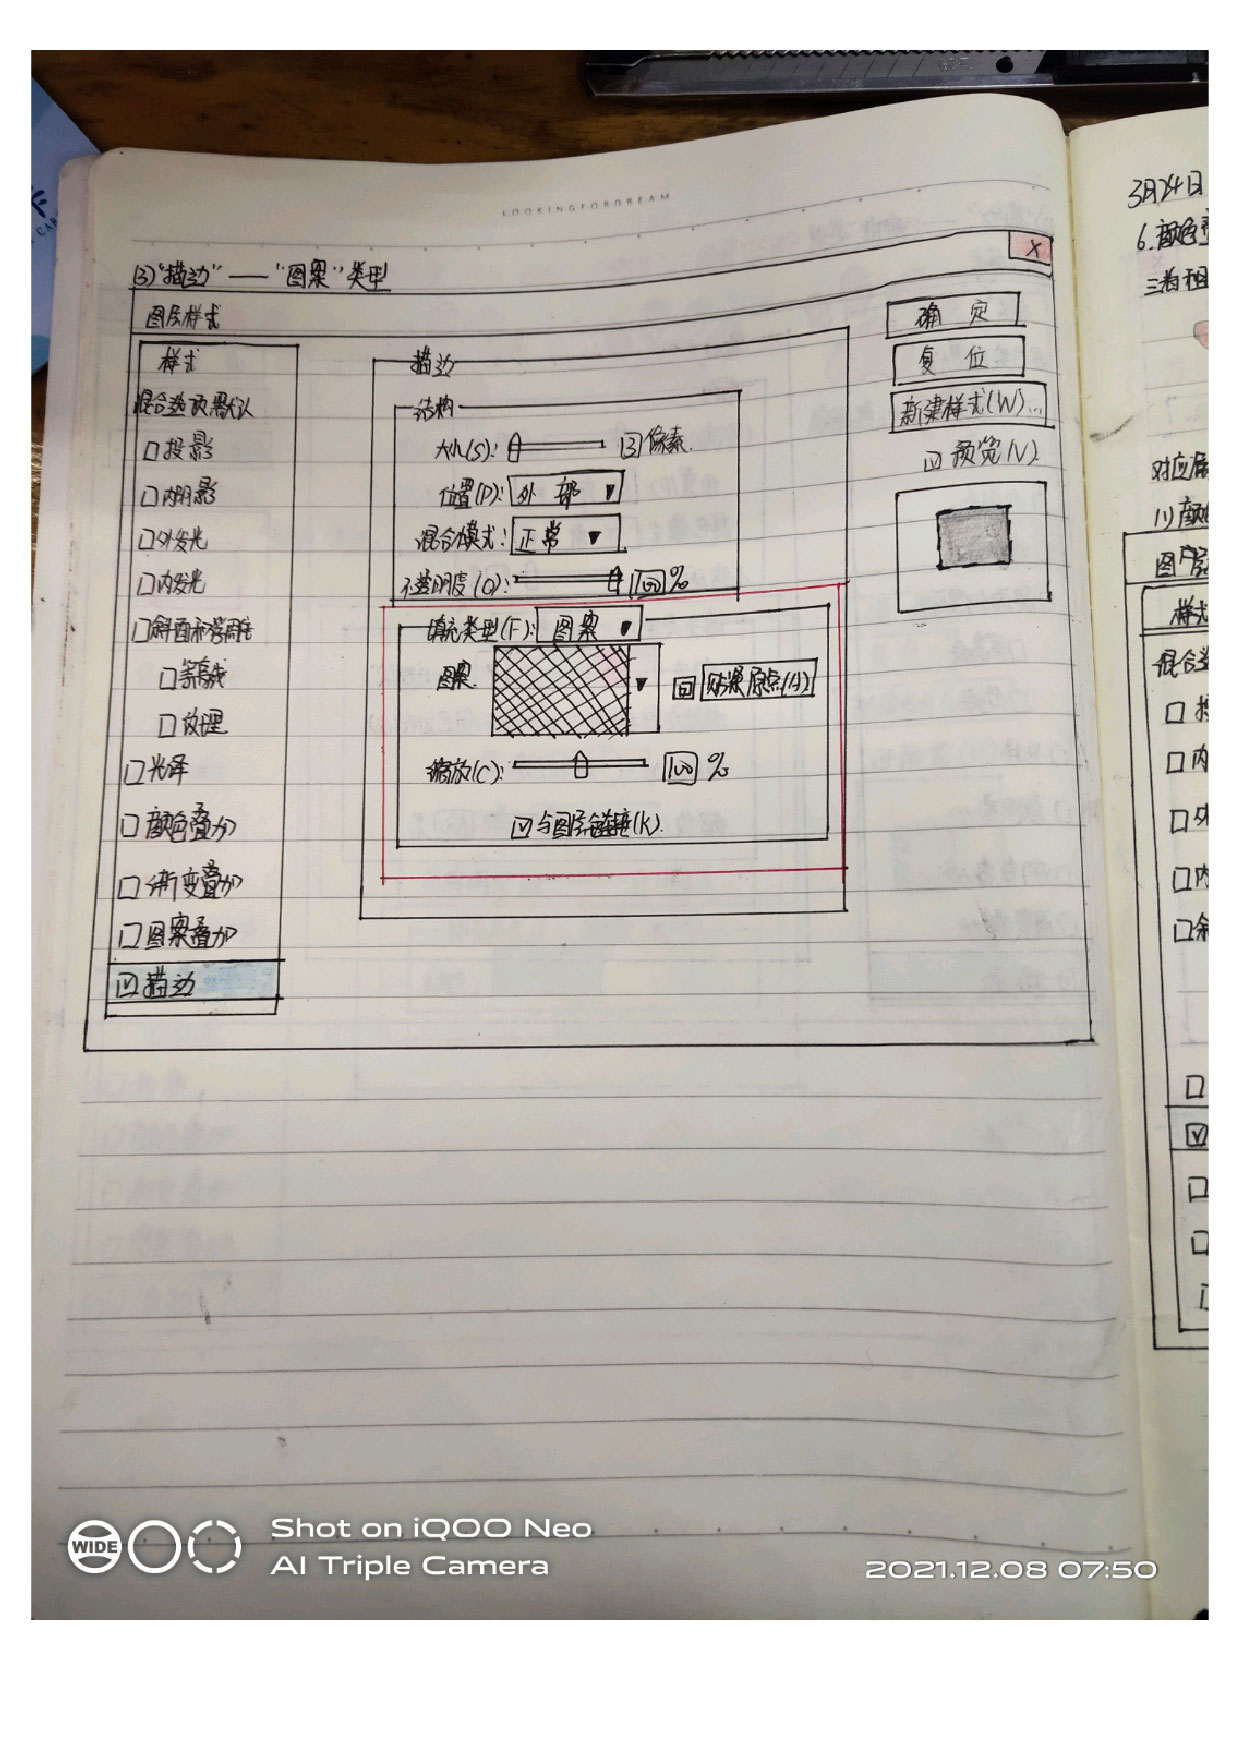 LOOKINGFORDREAM
(3)“描边”——“图案”类型
X
图层样式
样式
混合选项:默认
投影
内阴影
外发光
内发光
斜面和浮雕
等高线
纹理
光泽
颜色叠加
渐变叠加
图案叠加
描边
描边
结构
大小(S): 3 像素
位置(P): 外部
混合模式: 正常
不透明度(O): 100 %
填充类型(F): 图案
图案
贴紧原点(A)
缩放(C): 100 %
与图层链接(K)
确定
复位
新建样式(W)...
预览(V)
3月24日
6.颜色叠
三者相
对应属
(1)颜色
图层
样式
混合选
投
内
外
内
斜
WIDE
Shot on iQOO Neo
AI Triple Camera
2021.12.08 07:50